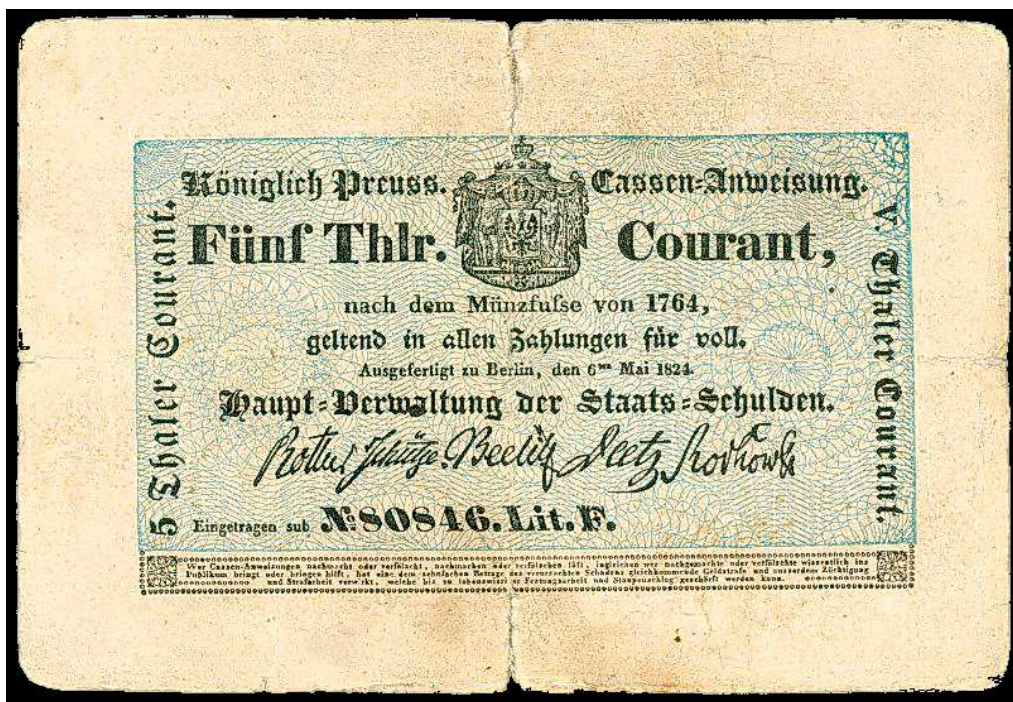 Königlich Preuss. Cassen-Anweisung.
Fünf Thlr. Courant,
nach dem Münzfuſse von 1764,
geltend in allen Zahlungen für voll.
Ausgefertigt zu Berlin, den 6ten Mai 1824.
Haupt-Verwaltung der Staats-Schulden.
Rother Schütze. Beelitz Deetz Rochow
Eingetragen sub No 80846. Lit. F.
5 Thaler Courant.
V. Thaler Courant.
Wer Cassen-Anweisungen nachmacht oder verfälscht, nachmachen oder verfälschen läſt, ingleichen wer nachgemachte oder verfälschte wissentlich ins
Publikum bringt oder bringen hilft, hat eine dem zehnfachen Betrage des verursachten Schadens gleichkommende Geldstrafe und ausserdem Züchtigung
und Strafarbeit verwirkt, welche bis zu lebenswieriger Festungsarbeit und Staupenschlag geschärft werden kann.